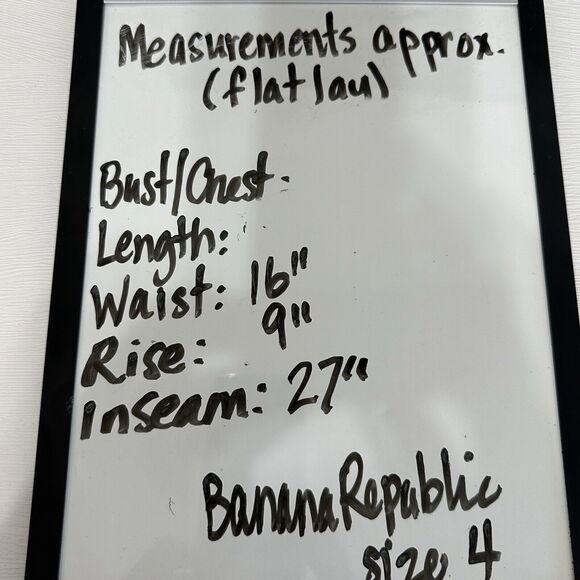 Measurements approx.
(flat lay)
Bust/Chest:
Length:
Waist: 16"
Rise: 9"
inseam: 27"
Banana Republic
size 4